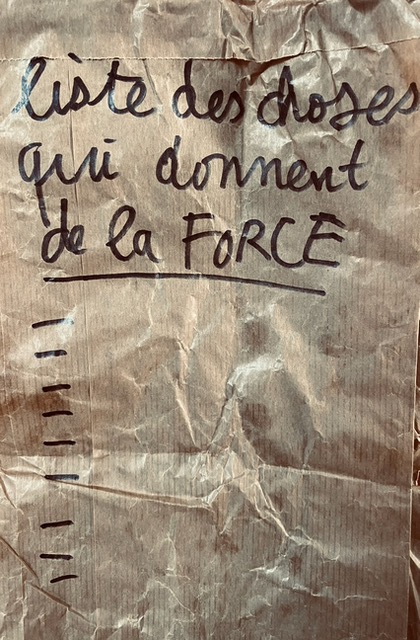 liste des choses
qui donnent
de la FORCE
-
-
-
-
-
-
-
-
-